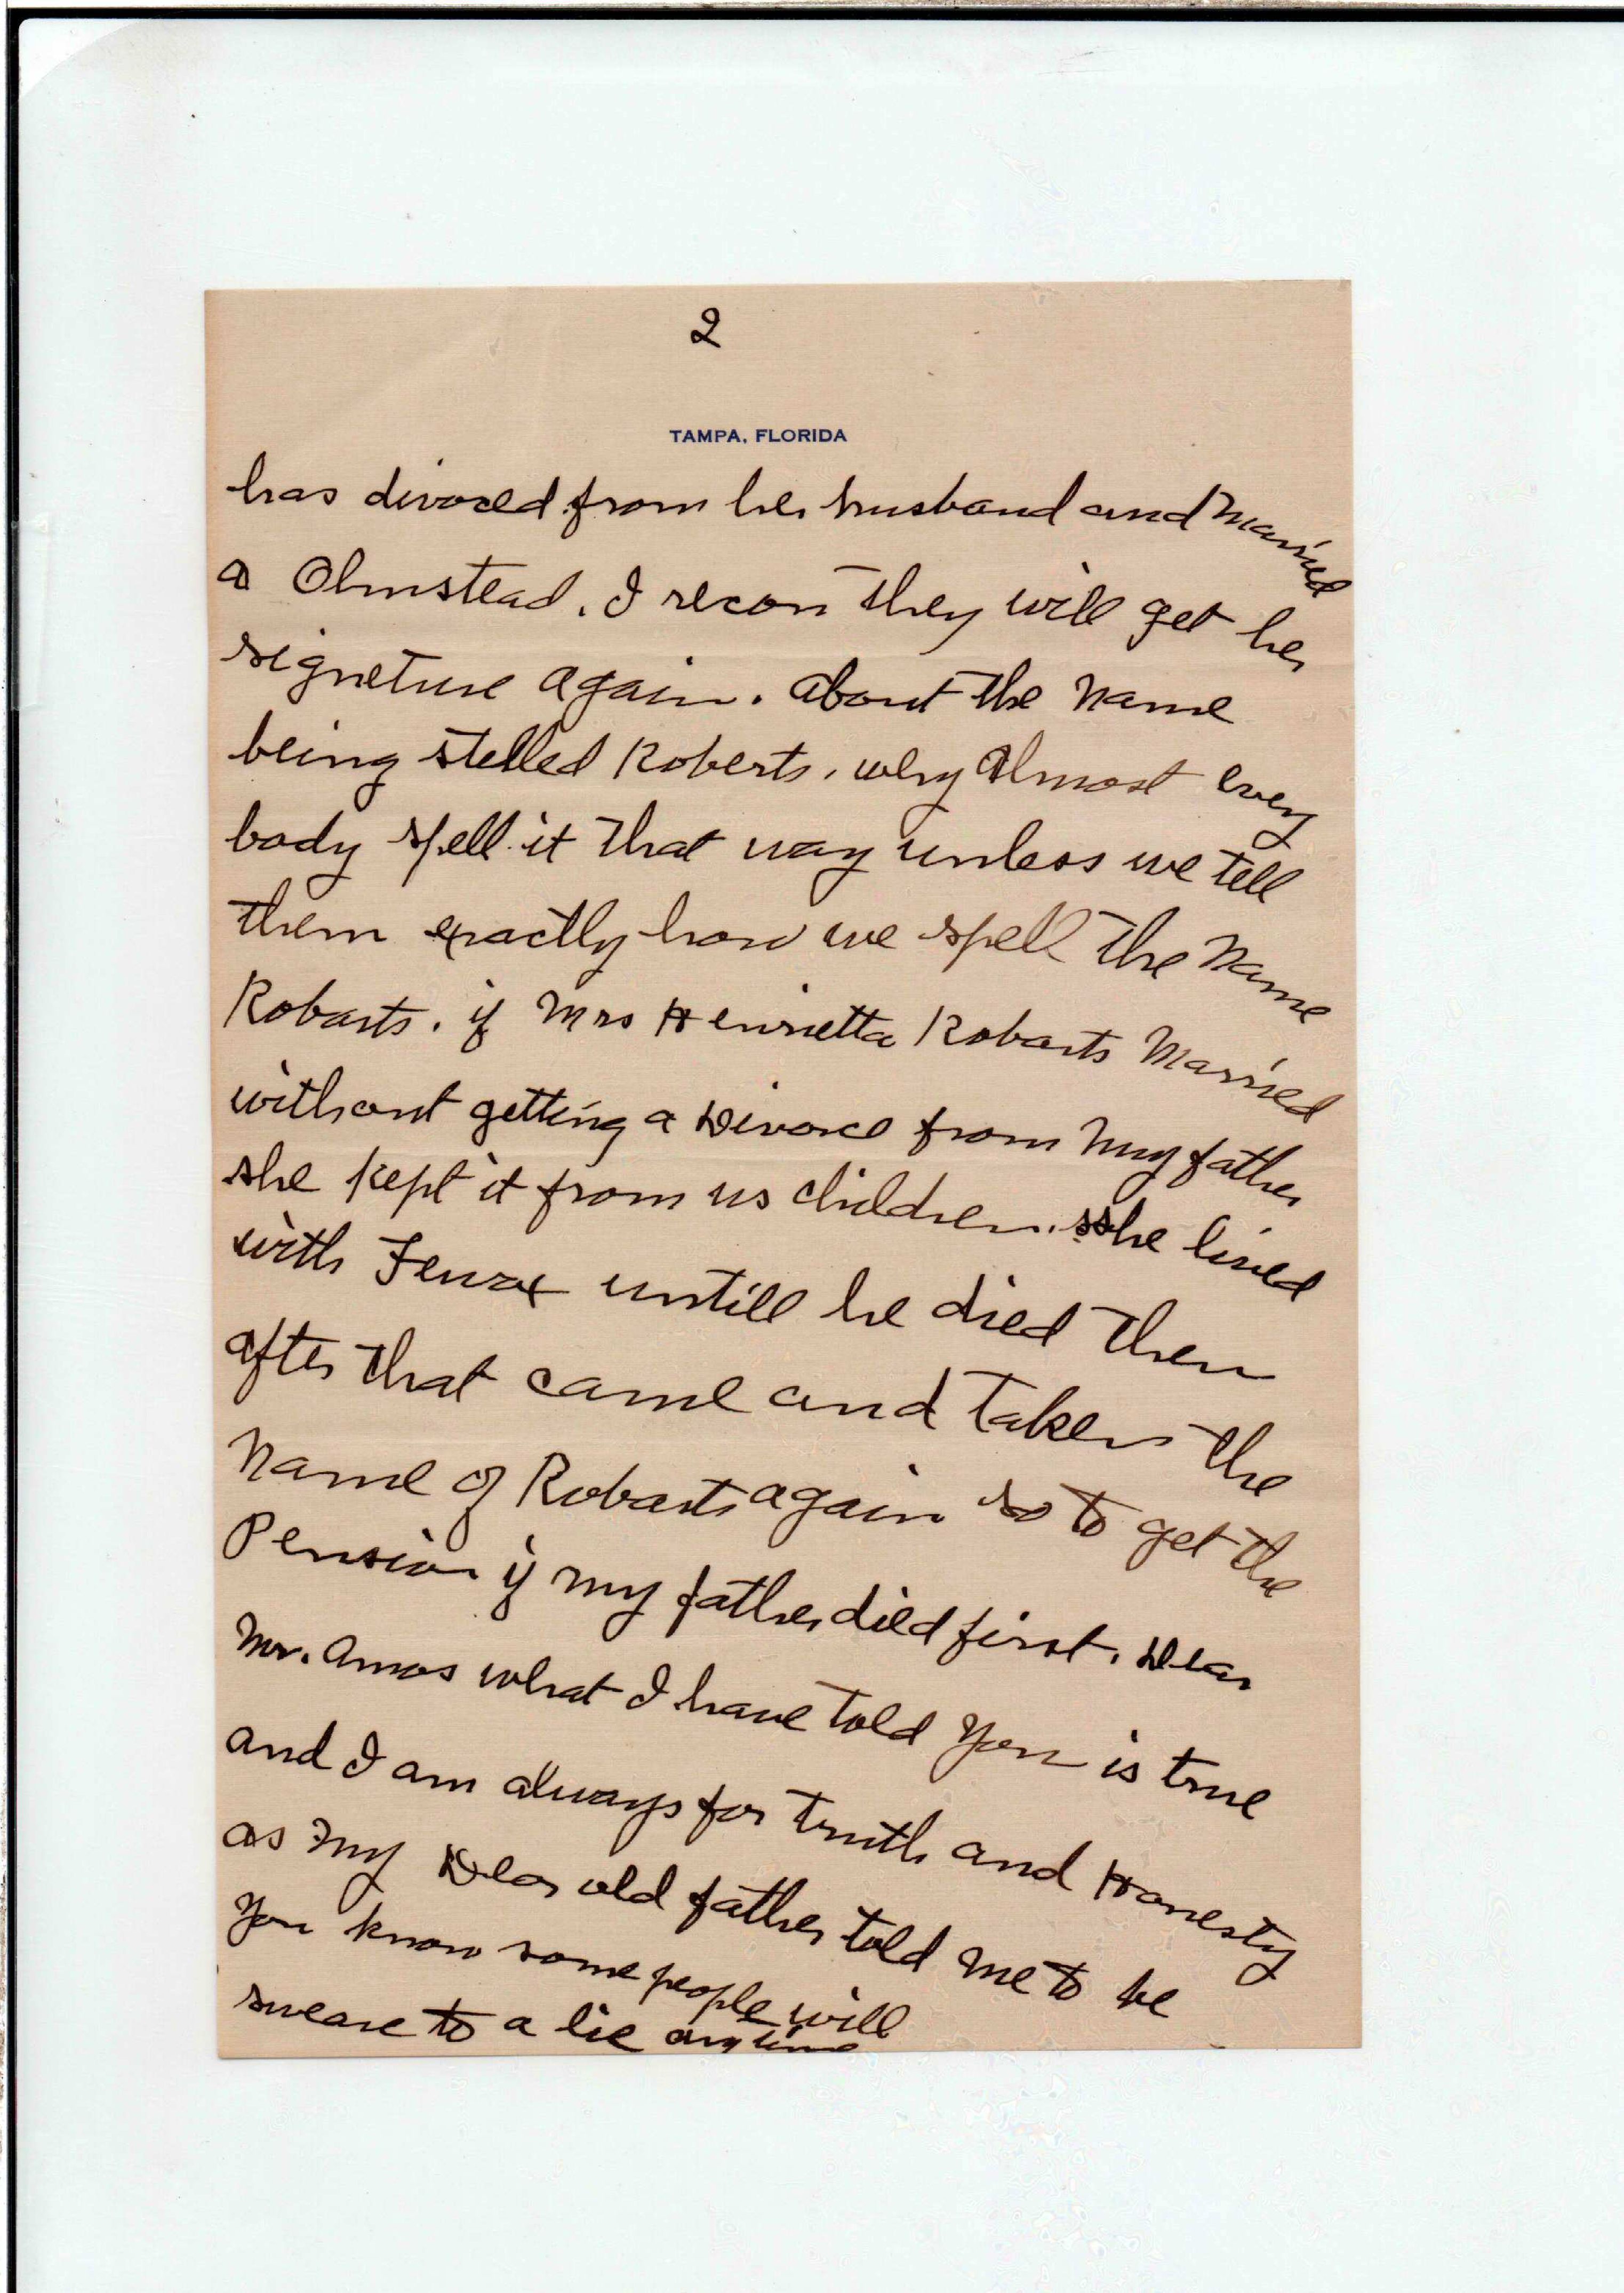 2
TAMPA, FLORIDA
has divoced from her husband and Married
a Olmstead. I recon they will get her
signeture again. about the Name
being stelled Roberts, why almost every
body spell it that way unless we tell
them exactly how we spell the Name
Robarts. if Mrs Henrietta Robarts Married
without getting a Divorce from my father
she kept it from us children. sshe lived
with untill he died then
after that came and taken the
Name of Robarts again so to get the
Pension if my father died first. Dear
Mr. Amos what I have told you is true
and I am always for truth and Honesty
as my Dear old father told me to be
you know some people will
sweare to a lie any time